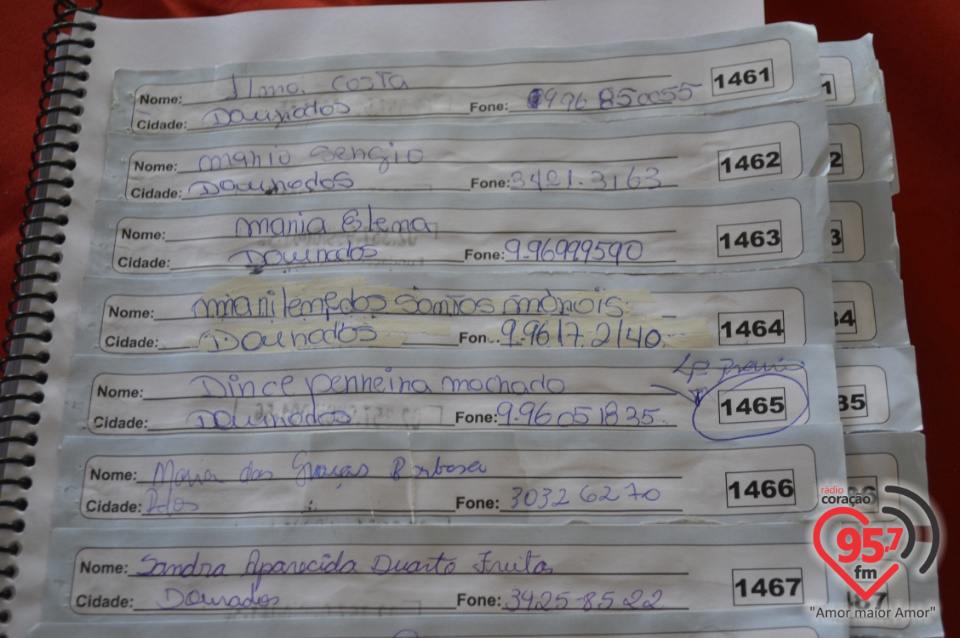 Nome: Ilma Costa 1461
Cidade: Dourados Fone: 996850055
Nome: Mario Sergio 1462
Cidade: Dourados Fone: 3421.3163
Nome: Maria Elena 1463
Cidade: Dourados Fone: 9.96999590
Marilene dos Santos 1464
Cidade: Dourados Fon.. 9.9617.2140.
Nome: Dirce Perreira Machado 1465
Cidade: Dourados Fone: 9.96051835.
Nome: Maria das Graças Barbosa 1466
Cidade: Ddos Fone: 30326270
Nome: Sandra Aparecida Duarto Freitas 1467
Cidade: Dourados Fone: 3425-8522
rádio
coração
95.7
fm
"Amor maior Amor"